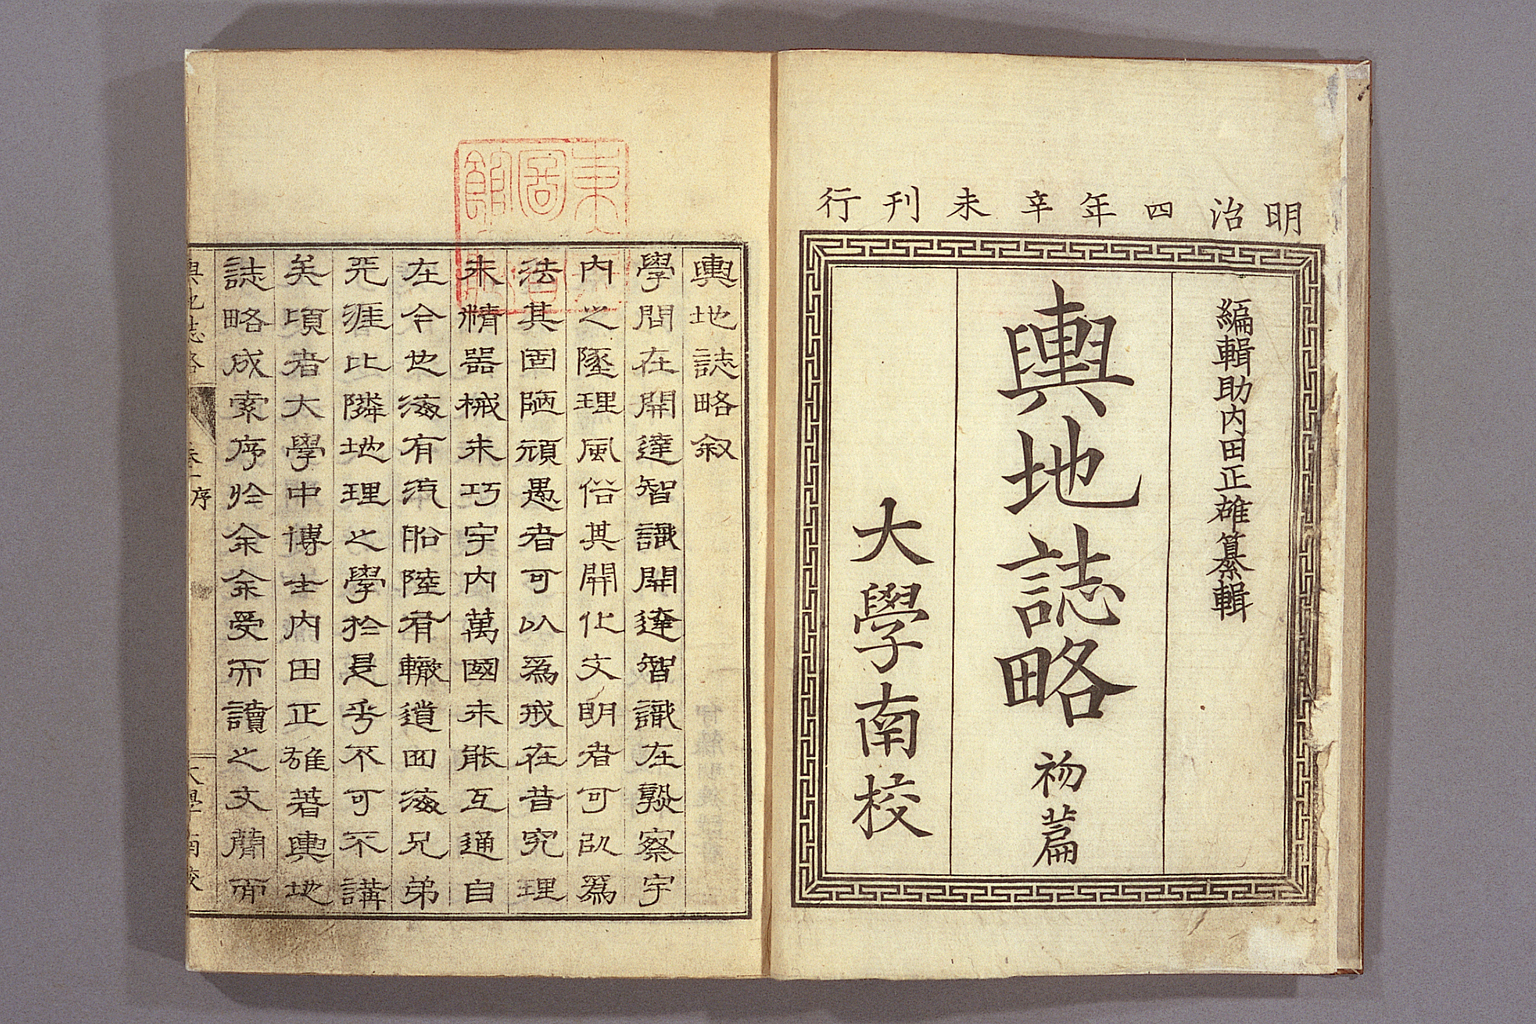 明治四年辛未刊行
編輯助内田正雄纂輯
輿地誌略
初篇
大學南校
輿地誌略叙
學問在開達智識開達智識在熟察宇
内之墜理風俗其開化文明者可以爲
法其固陋頑愚者可以爲戒在昔究理
未精器械未巧宇内萬國未能互通自
在今也海有汽船陸有轍道四海兄弟
无涯比隣地理之學於是乎不可不講
矣頃者大學中博士内田正雄著輿地
誌略成索序於余余受而讀之文簡而
輿地誌略
卷一序
大學南校